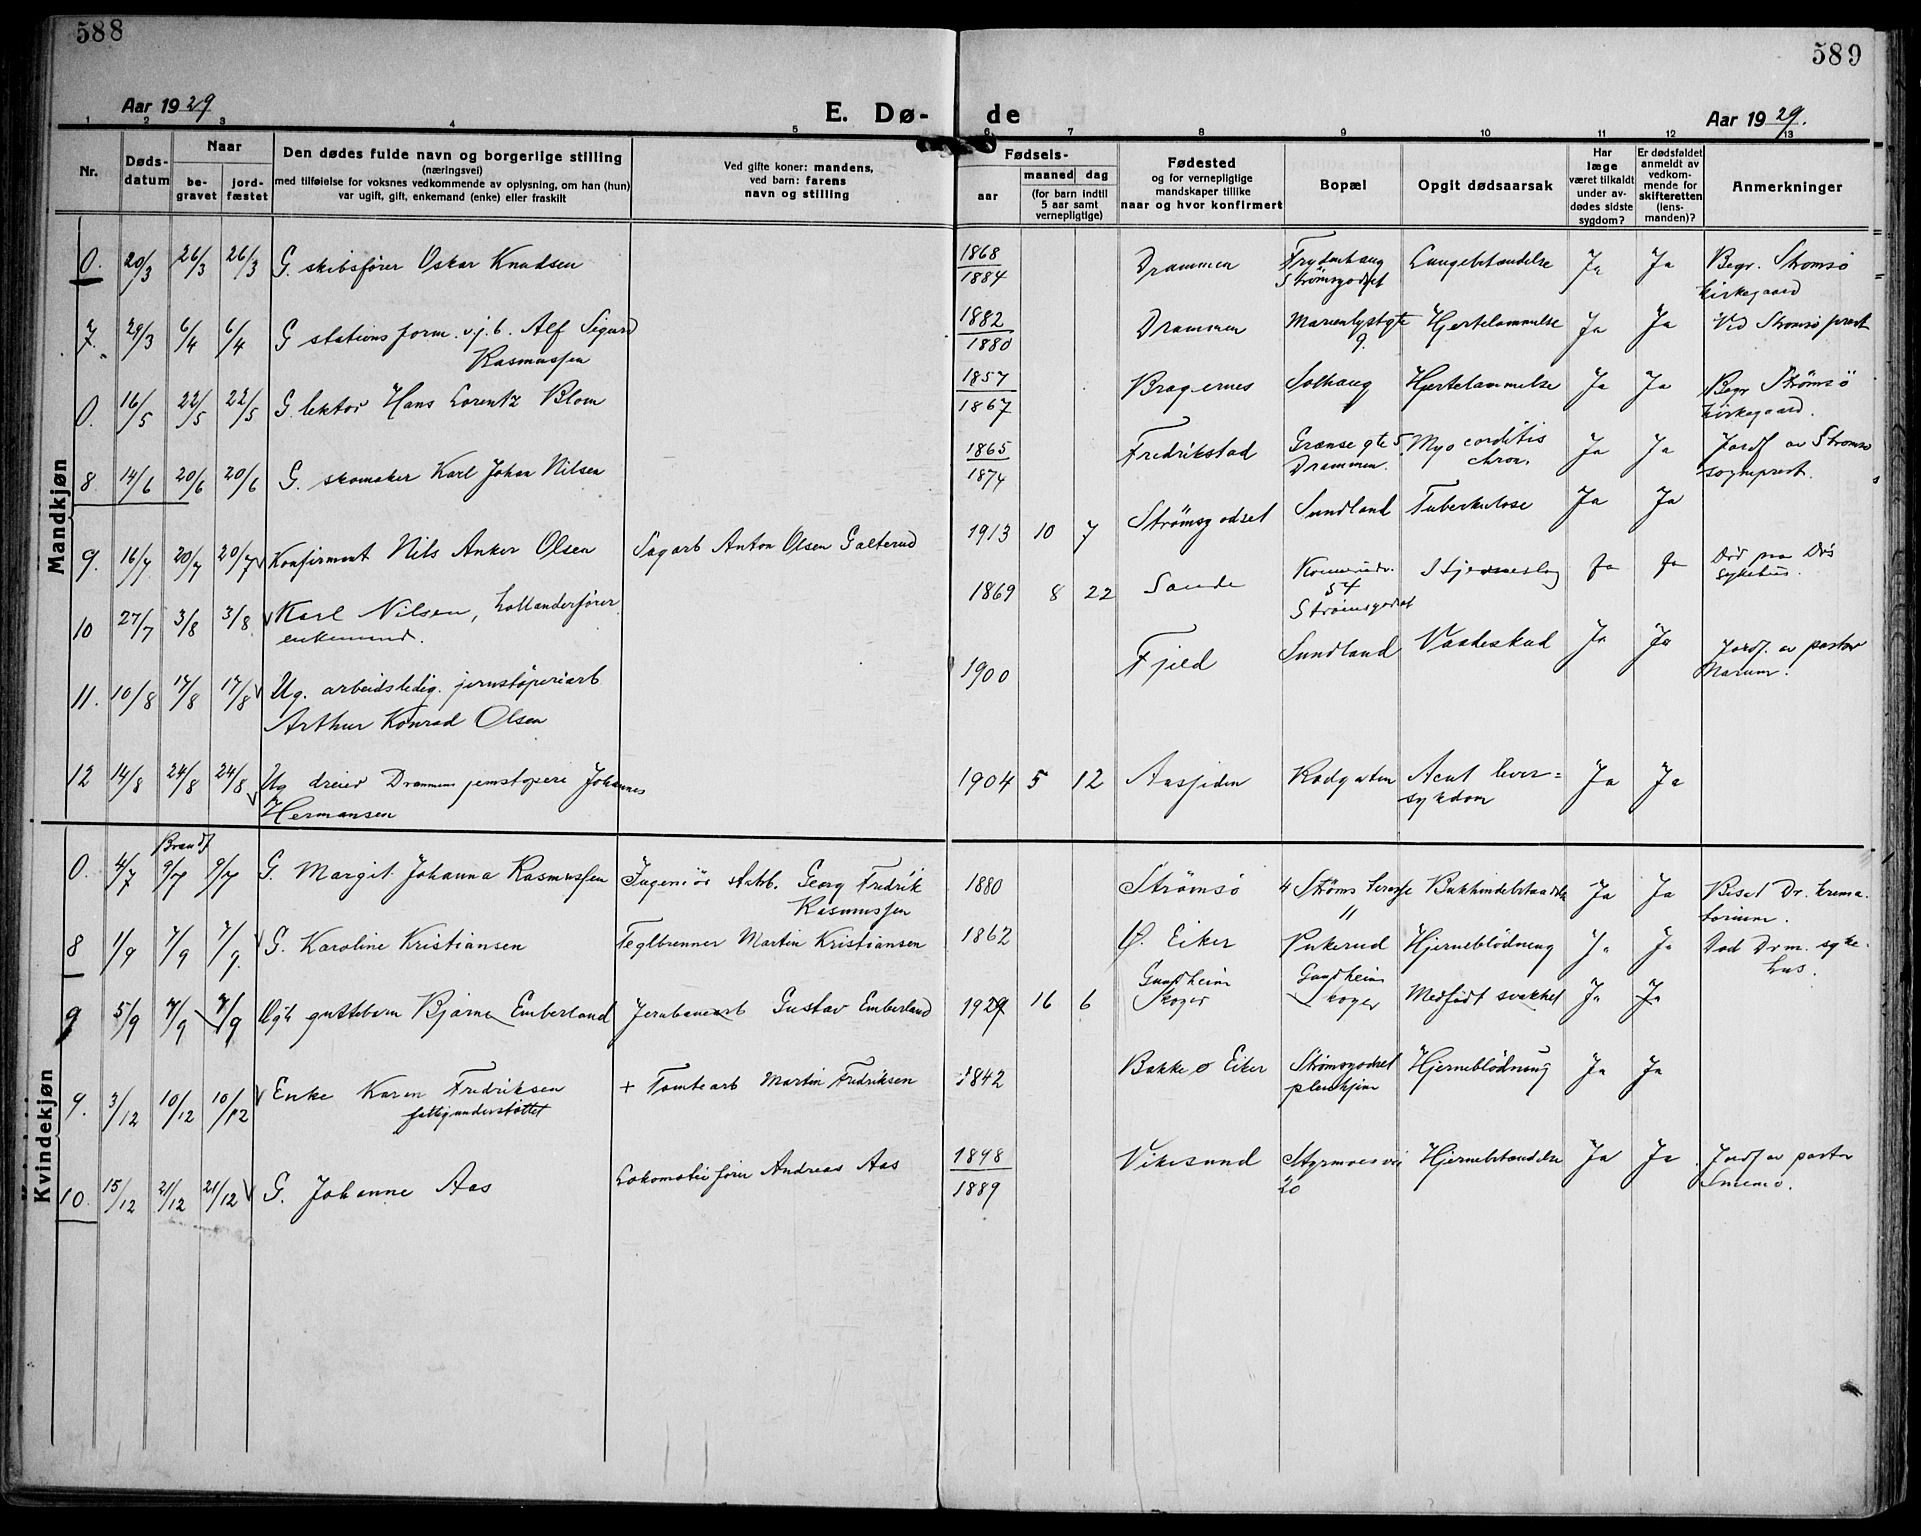 588
589
Aar 1929
E. Dø- de
Aar 1929.
1 2 3 4 5 6 7 8 9 10 11 12 13
Nr.
Døds-
datum
Naar
be-
gravet
jord-
fæstet
Den dødes fulde navn og borgerlige stilling
(næringsvei)
med tilføielse for voksnes vedkommende av oplysning, om han (hun)
var ugift, gift, enkemand (enke) eller fraskilt
Ved gifte koner: mandens,
ved barn: farens
navn og stilling
Fødsels-
aar
maaned dag
(for barn indtil
5 aar samt
vernepligtige)
Fødested
og for vernepligtige
mandskaper tillike
naar og hvor konfirmert
Bopæl
Opgit dødsaarsak
Har
læge
været tilkaldt
under av-
dødes sidste
sygdom?
Er dødsfaldet
anmeldt av
vedkom-
mende for
skifteretten
(lens-
manden)?
Anmerkninger
Mandkjøn
0. 20/3 26/3 26/3 G. skibsfører Oskar Knudsen 1868 1884 Drammen Frydenhaug Strømsgodset Lungebetændelse Ja Ja Begr. Strømsø
kirkegaard
7. 29/3 6/4 6/4 G stations form. v. j. b. Alf Sigurd 1882 1880 Drammen Marienlystgte 9. Hjertelammelse Ja Ja Ved Strømsø prest
Rasmussen
0. 16/5 22/5 22/5 G. lektor Hans Lorentz Blom 1857 1867 Bragernes Solhaug Hjertelammelse Ja Ja Begr Strømsø
kirkegaard.
8. 14/6 20/6 20/6 G. skomaker Karl Johan Nilsen 1865 1874 Fredrikstad Grænsegte 5 Drammen. Myocorditis chron. Ja Ja Jordf av Strømsø
sogneprest.
9. 16/7 20/7 20/7 Konfirmant Nils Anker Olsen Sagarb Anton Olsen Galterud 1913 10 7 Strømsgodset Sundland Tuberkulose Ja Ja
10 27/7 3/8 3/8 Karl Nilsen, hollanderfører 1869 8 22 Sande 54 Strømsgodset Hjerneslag Ja Ja Død paa Drs
enkemand. sykehus.
11. 10/8 17/8 17/8 Ug. arbeidsledig. jernstøperiarb 1900 Fjeld Sundland Vaadeskud Ja Ja Jordf. av pastor
Arthur Konrad Olsen Marum.
12 14/8 24/8 24/8 Ug dreier Drammens jernstøperi Johannes 1904 5 12 Aassiden Rødgaten Acut lever=
Hermansen sykdom Ja Ja
Kvindekjøn
0. 4/7 Brandf 9/7 9/7 G. Margit Johanna Rasmussen Ingeniør statsb. Georg Fredrik 1880 Strømsø 4 Strøms terasse 11 Ja Ja Bisat Dr. krema-
Rasmussen torium.
8 1/9 7/9 7/9. G. Karoline Kristiansen Teglbrenner Martin Kristiansen 1862 Ø. Eiker Pukerud Hjerneblødning Ja Ja Død Drm. syke-
hus.
9 5/9 7/9 7/9 guttebarn Bjarne Emberland Jernbanearb Gustav Emberland 1929 16 6 Gundheim Skoger Gundheim Skoger Medfødt svakhet Ja Ja
9. 3/12 10/12 10/12 Enke Karen Fredriksen + Tomtearb Martin Fredriksen 1842 Bakke Ø Eiker Strømsgodset pleiehjem Hjerneblødning Ja Ja
fattigunderstøttet
10. 15/12 21/12 21/12 G. Johanne Aas Lokomotivfører Andreas Aas 1848 1889 Vikesund Styrmoesvei 20 Hjernebetændelse Ja Ja Jordf av pastor